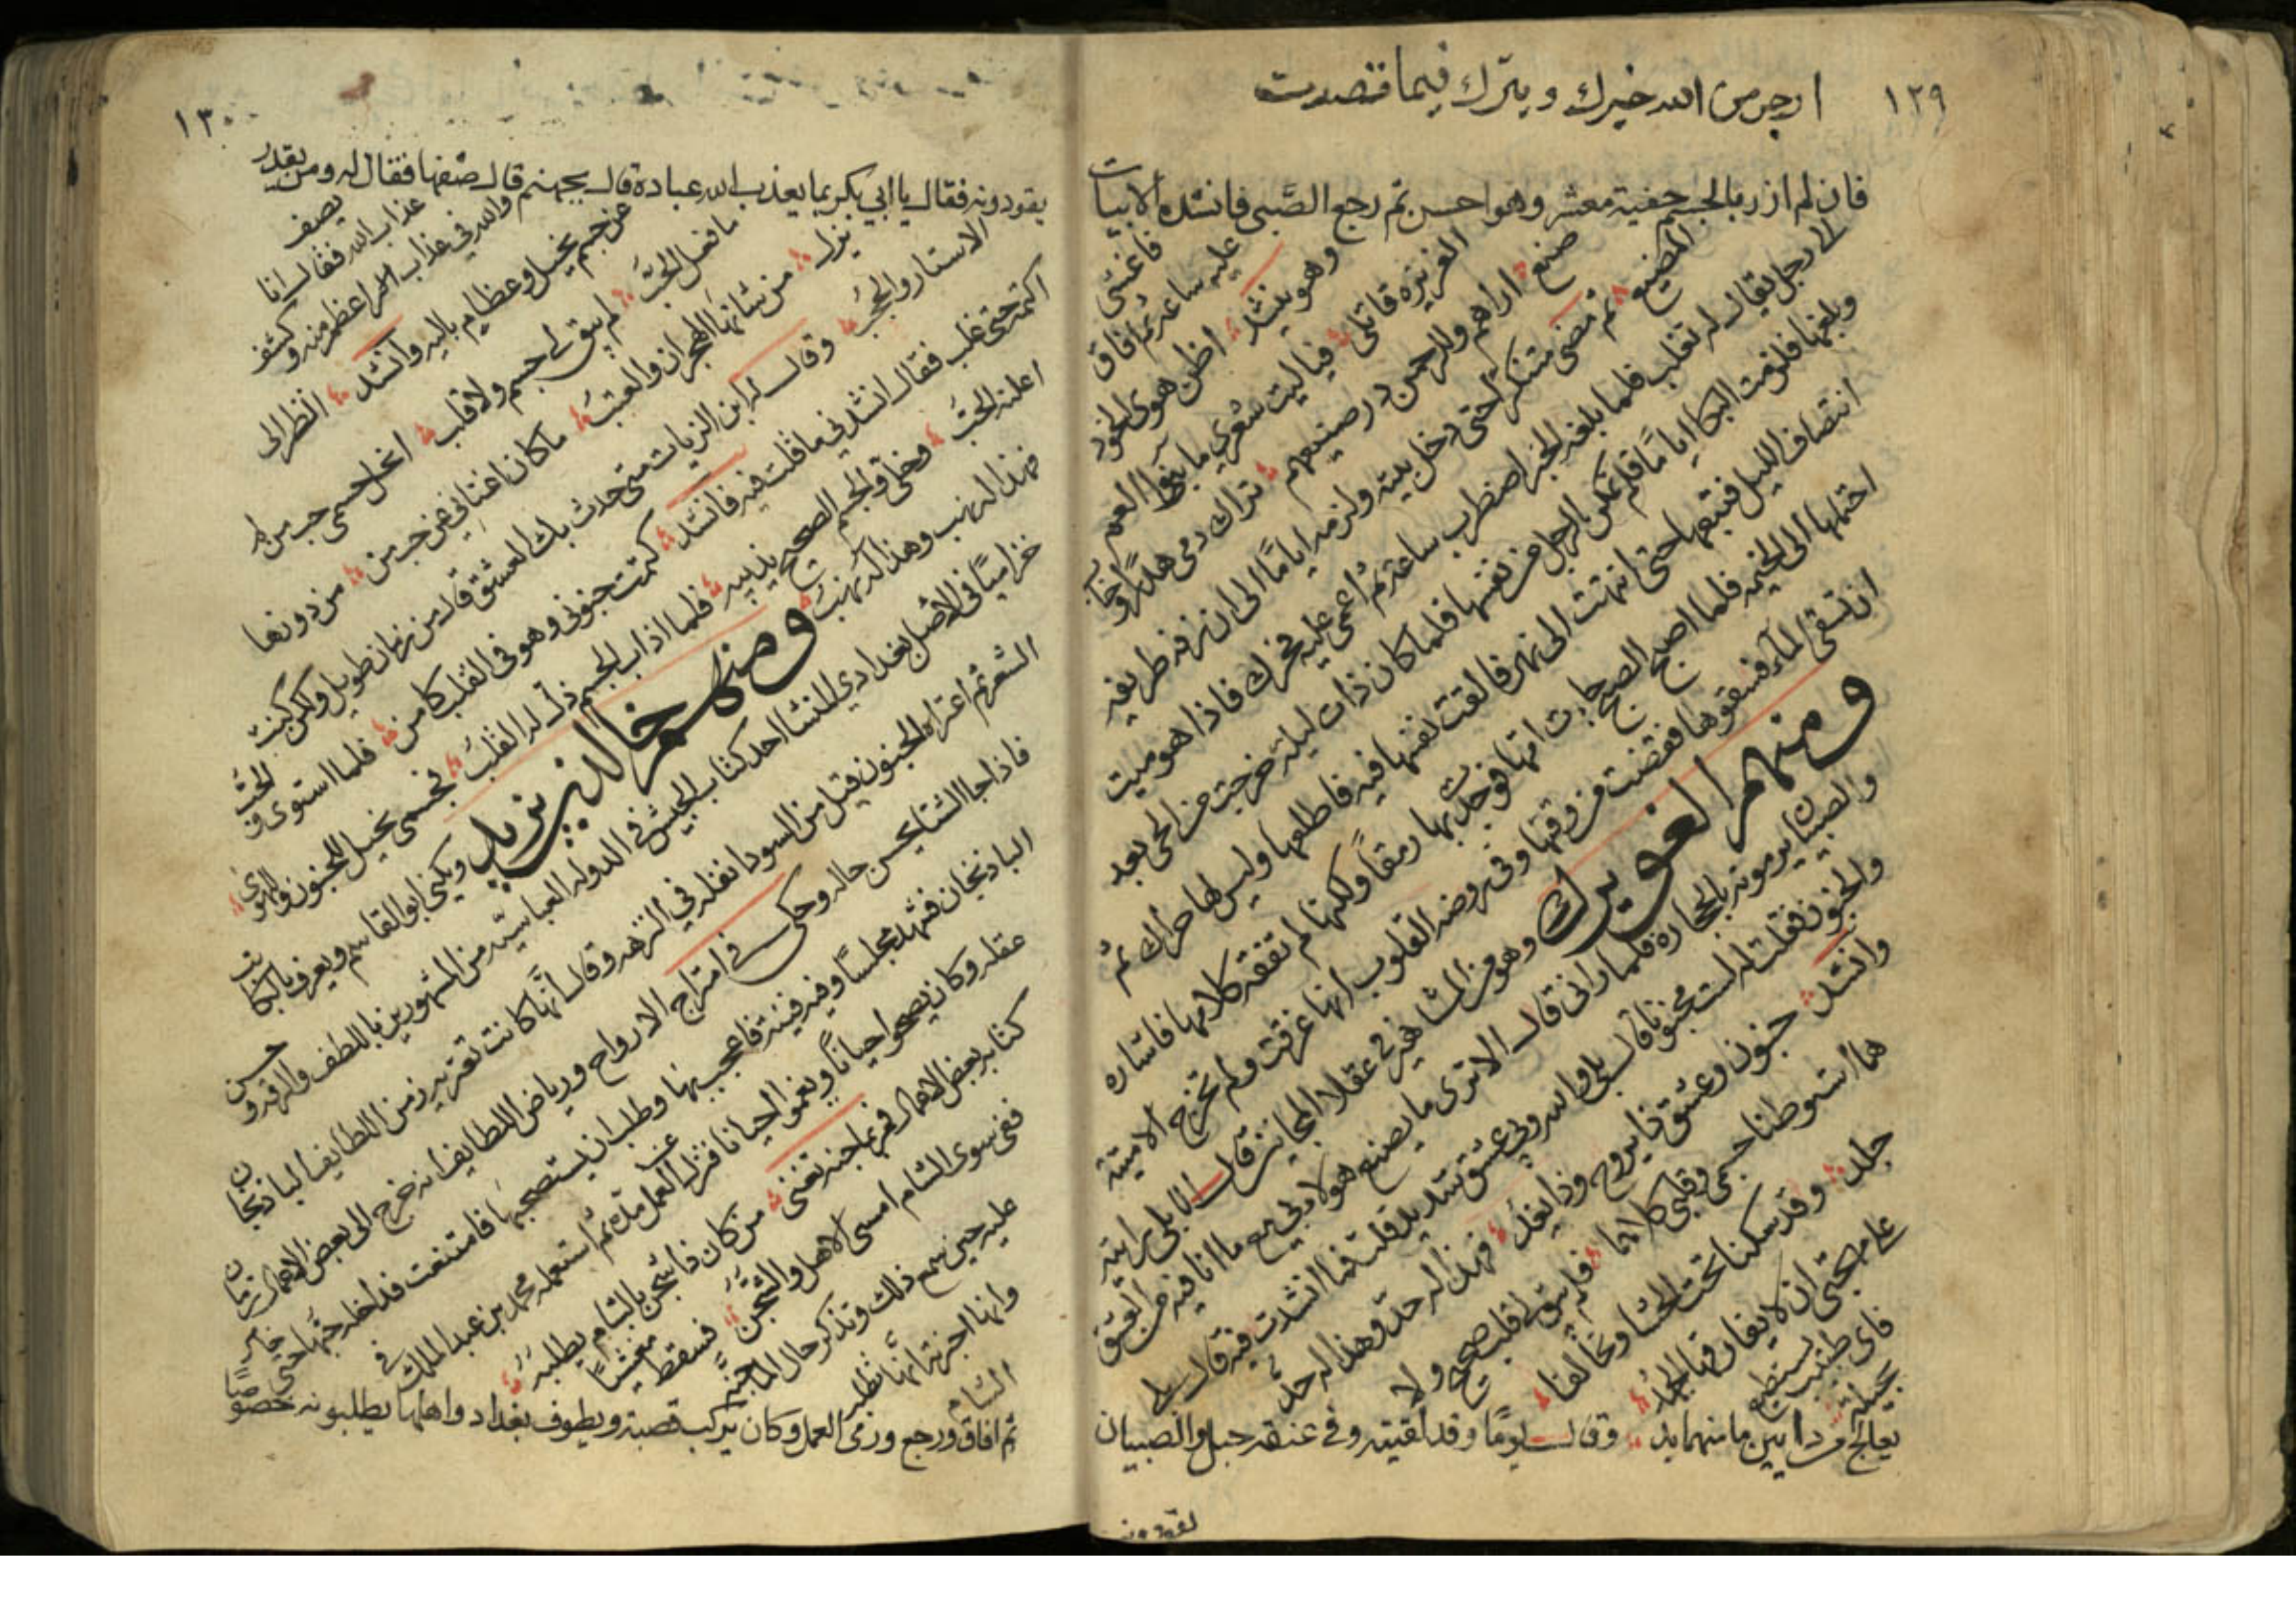 ١٢٩
ارجو من الله خيرك ويترك فيما قصدت
فان لم ازر بالجسم حفية معشر وهوا حسن ثم رجع الصبى فانشده الابيات
فاغشى
عليه ساعة ثم افاق
وهو ينشد اظن هوى الخود
الغريزة قاتلى فيا ليت شعرى ما بنوا العم
صنع اراهم وللرحمن در صنيعهم تراك دمى هدرا وخاب
المضيع ثم مضى متنكرا حتى دخل بيته ولزمه اياما الى ان زفه طريفه
الى رجل يقال له ثعلب فلما بلغه الخبر اضطرب ساعة ثم اغمى عليه فحرك فاذا هو ميت
وبلغها فلزمت البكا اياما فلم تمكن الرجل من نفسها فلما كان ذات ليلة خرجت من الحى بعد
انتصاف الليل فتبعها حتى انتهت الى نهر فالقت نفسها فيه فاطلعها وليس لها حراك ثم
احتملها الى الخيمه فلما اصبح الصبح جات امها فوجدت بها رمقا ولكنها لم تفقه كلامها فاشاره
ان تسقى الماء فسقوها فقضت من وقتها وفى روضه القلوب انها غرقت ولم تخرج الا ميتة
ومنهم الغويرك وهو من المشاهير فى عقلاء المجانين قال الابلى رايته
والصبيان يرمونه بالحجاره فلما رانى قال الا ترى ما يصنع هولا بى مع ما انا فيه من العشق
والجنون فقلت له لست مجنونا قال بلى والله وبى عشق شديد قلت فما انشدت فيه قال بلى
وانشد جنون وعشق ذا يروح وذا يغد فهذا له حد وهذا له حد
هما استوطنا جسمى وقلبى كلاهما فلم يبق لى قلب صحيح ولا
جلد وقد سكنا تحت الحشا وتحالفا
على مهجتى ان لا يفارقها الجهد
فاى طبيب يستطيع
بحيلة
يعالج من داين ما منهما بد وقال يوما وقد لقيته وفى عنقه حبل والصبيان
يقودونه
١٣٠
يقودونه فقال يا ابى بكر بما يعذب الله عباده قال بجهنم قال صفها فقال له ومن يقدر
يصف
عذاب الله فقال انا
والله فى عذاب اعظم منه وكشف
عن جسم نحيل وعظام باليه وانشد انظر الى
ما فعل الحب لم يبق لى جسم ولا قلب انحل جسمى حب من لم
يزل من شانها الهجران والعتب ما كان اغنانى عن حب من من دونها
الاستار والحجب وقال له ابن الزيات متى حدث بك العشق قال من زمان طويل ولكن كنت
اكتمه حتى غلب فقال انشدنى ما قلت فيه فانشد كتمت جنونى وهو فى القلب كامن فلما استوى والحب
اعلنه الحب وخلى والجسم الصحيح يذيبه فلما اذاب الجسم ذل له القلب فجسمى نحيل للجنون والهوى
فهذا له نهب وهذا له نهب ومنهم خالد بن يزيد ويكنى ابو القاسم ويعرف بالكاتب
خراسانى الاصل بغدادى المنشا احد كتاب الجيش فى الدوله العباسيه من المشهورين باللطف والرقه وحسن
الشعر ثم اعتراه الجنون قيل من السودا نقله فى النزهه وقال انها كانت تعتريه زمن اللطايف الباذنجان
فاذا جا الشتا يحسن حاله وحكى فى امتزاج الارواح ورياض اللطايف انه خرج الى بعض الاعمال زمان
الباذنجان فشهد مجلسا وفيه قينة فاعجب بها وطلب ان يستصحبها فامتنعت فداخله حبها حتى خامر
عقله وكان يصحوا احيانا ويغموا احيانا فترك العمل مدة ثم استعمله محمد بن عبد الملك فى
كتابه بعض الاعمال فمر بما جنه تغنى من كان ذا شجن بالشام يطلبه
ففى سوى الشام امسى الاهل والشجن فسقط مغشيا
عليه حين سمع ذلك وتذكر حال الماجنه
وانها اخبرته انها تطلب
الشام
ثم افاق ورجع ورمى العمل وكان يركب قصبة ويطوف بغداد واهلها يطلبونه خصوصا